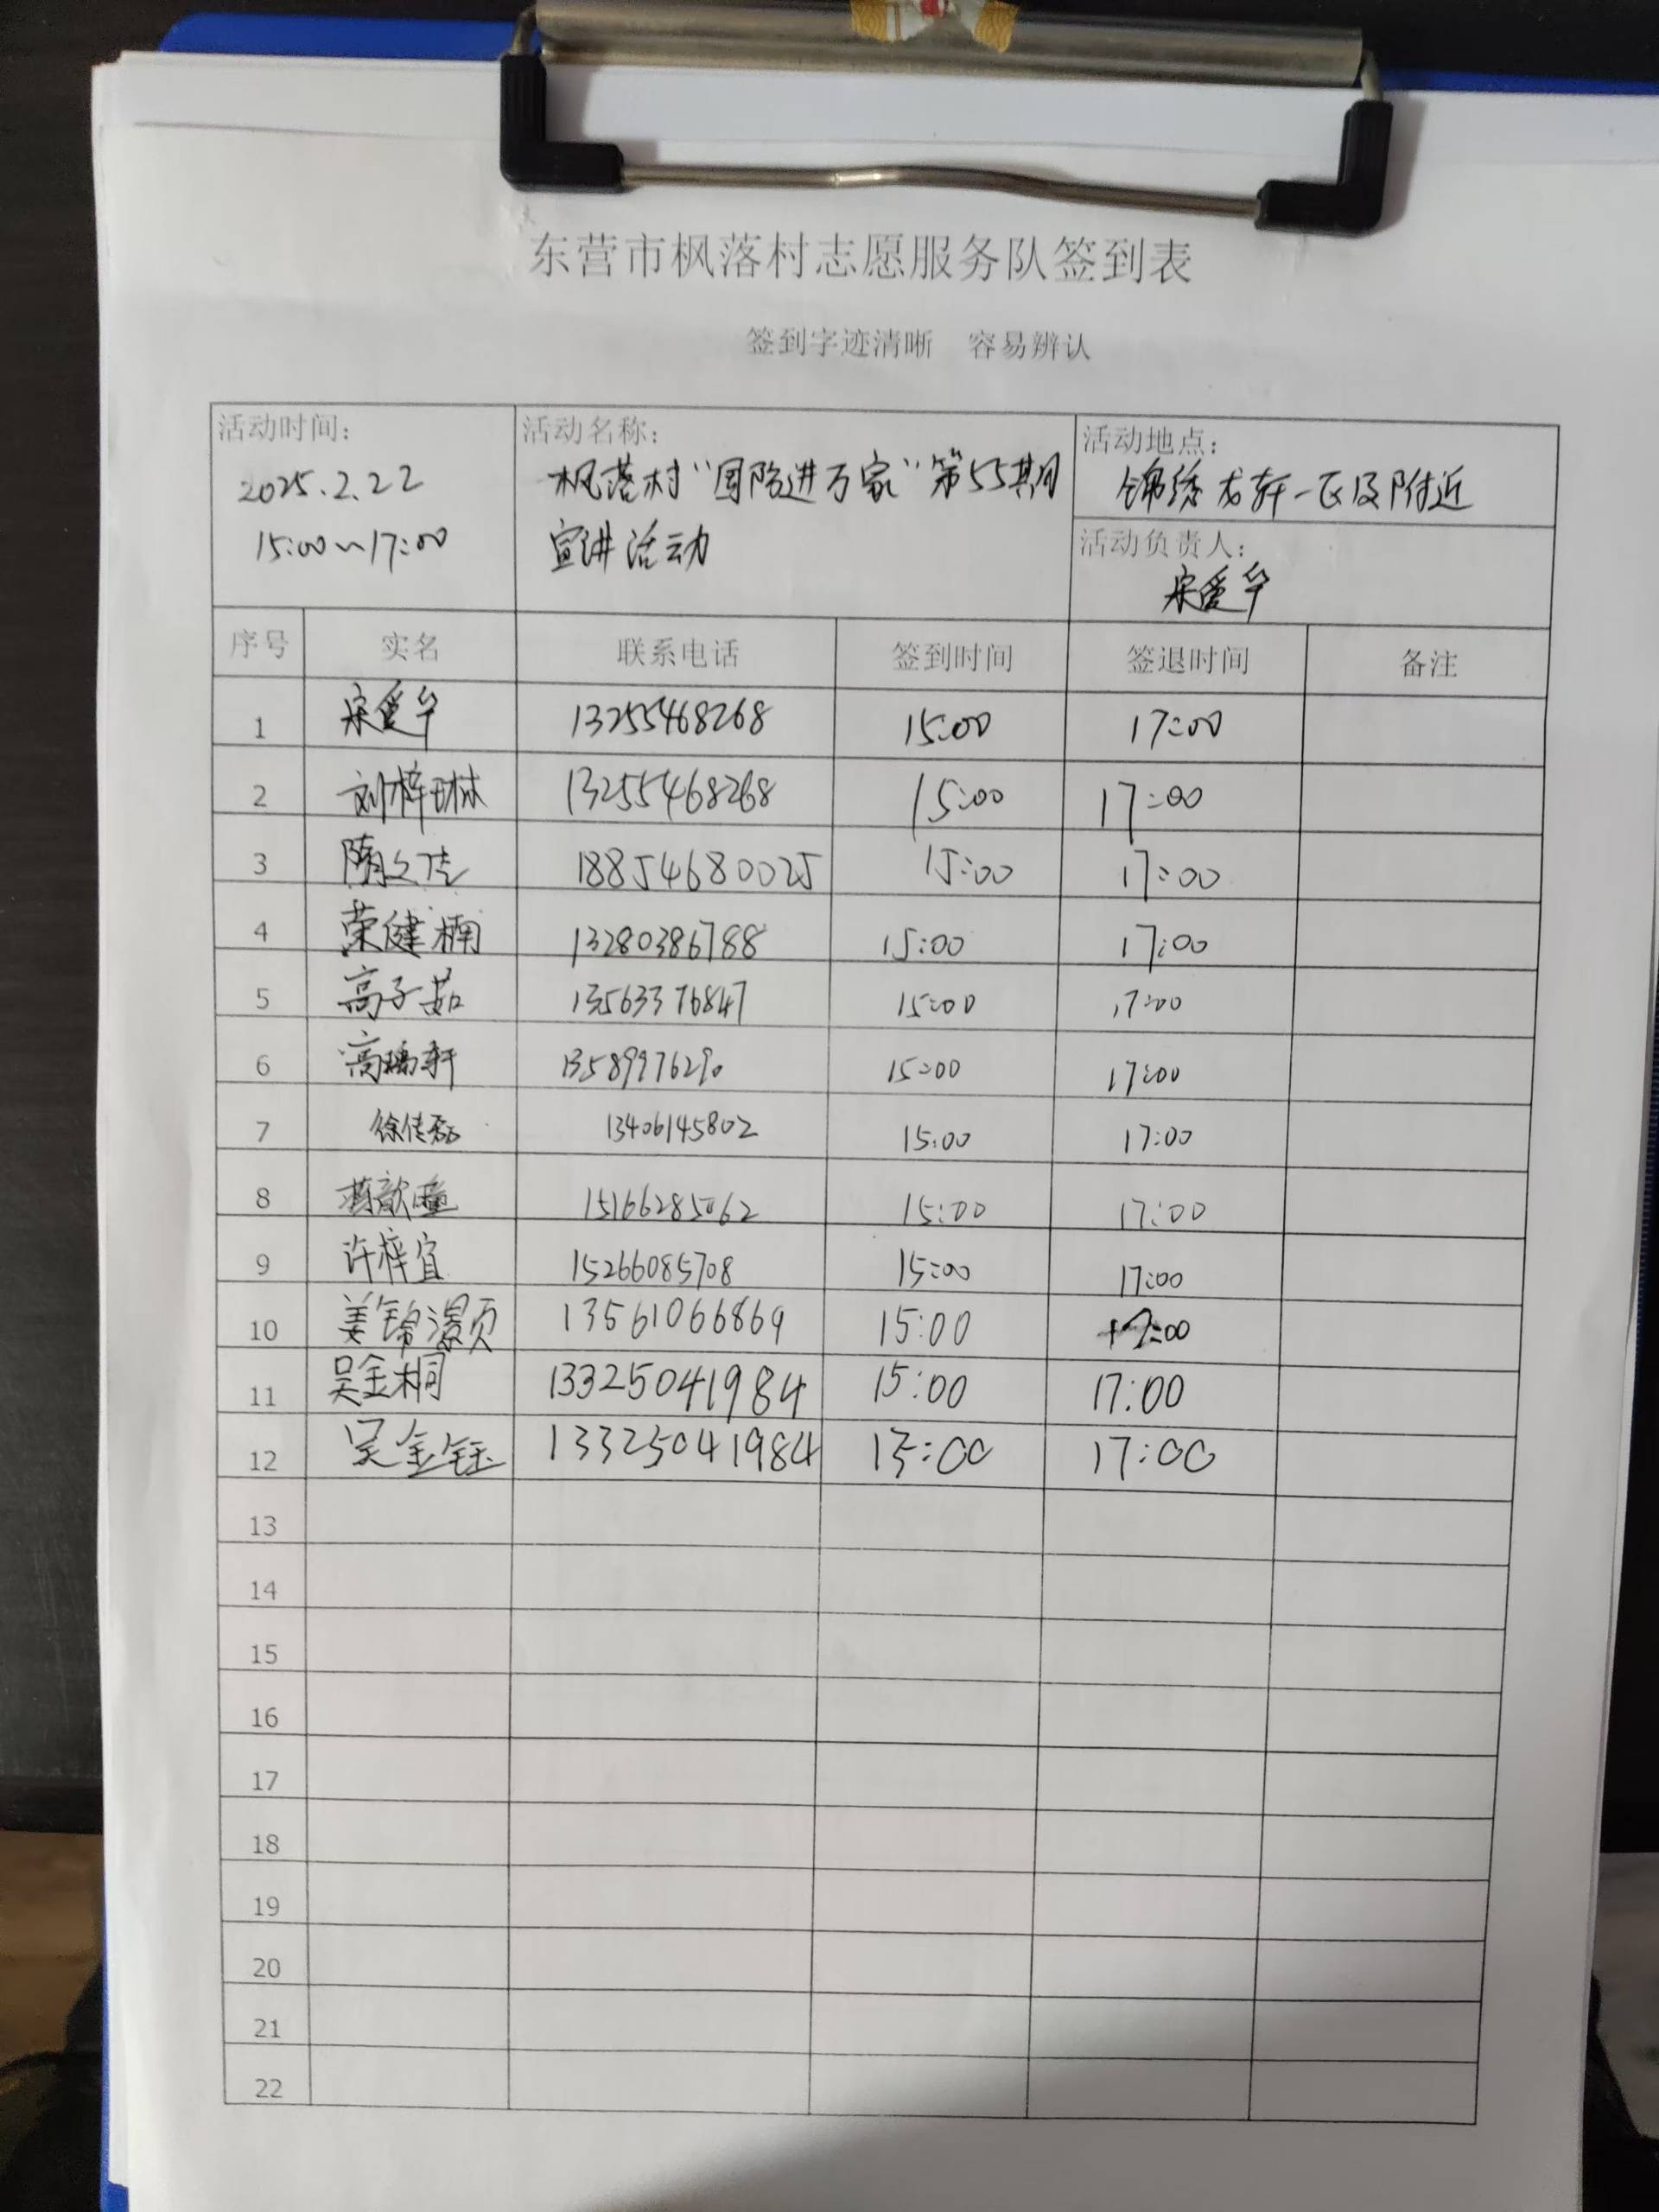 东营市枫落村志愿服务队签到表
签到字迹清晰 容易辨认
活动时间：
2025.2.22
15:00~17:00
活动名称：
枫落村“国防进万家”第55期
宣讲活动
活动地点：
锦绣龙轩一区及附近
活动负责人：
宋爱华
序号 实名 联系电话 签到时间 签退时间 备注
1 宋爱华 13255468268 15:00 17:00
2 刘梓琳 13255468268 15:00 17:00
3 隋文佳 18854680025 15:00 17:00
4 荣健楠 13280386788 15:00 17:00
5 高子茹 13563376847 15:00 17:00
6 高瑞轩 13589976290 15:00 17:00
7 徐传磊 13406145802 15:00 17:00
8 15166285062 15:00 17:00
9 许梓宜 15266085708 15:00 17:00
10 姜锦灏 13561066869 15:00 17:00
11 吴金桐 13325041984 15:00 17:00
12 吴金钰 13325041984 15:00 17:00
13
14
15
16
17
18
19
20
21
22